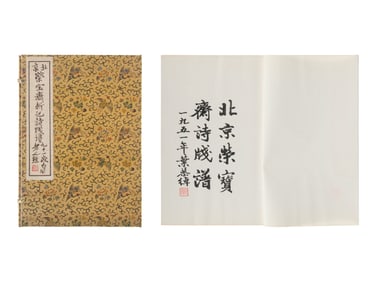 北京
榮寶齋新記詩牋譜
北京榮寶
齋詩牋譜
一九五一年葉恭綽